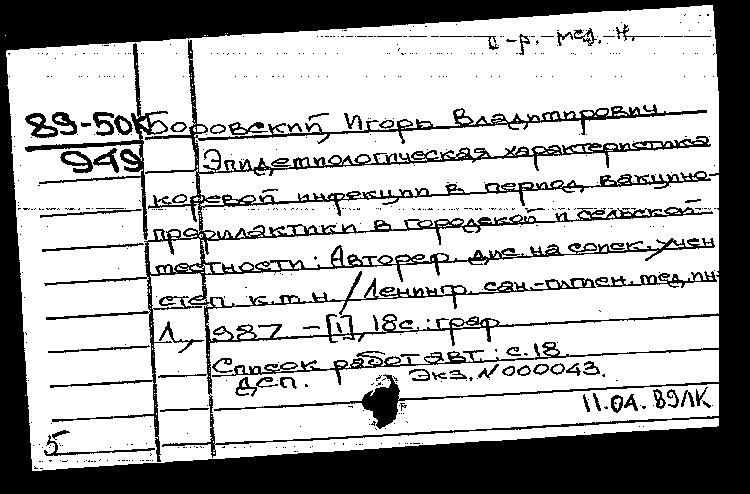 д-р. мед. н.
89-50К Боровский, Игорь Владимирович
949 Эпидемиологическая характеристика
коревой инфекции в период вакцино-
профилактики в городской и сельской
местности: Автореф. дис. на соиск. учен
степ. к.м.н. / Ленингр. сан.-гигиен. мед. ин-
Л., 1987 - [1], 18с.: граф
Список работ авт.: с.18.
ДСП. Экз. N 000043.
11.04.89ЛК
5